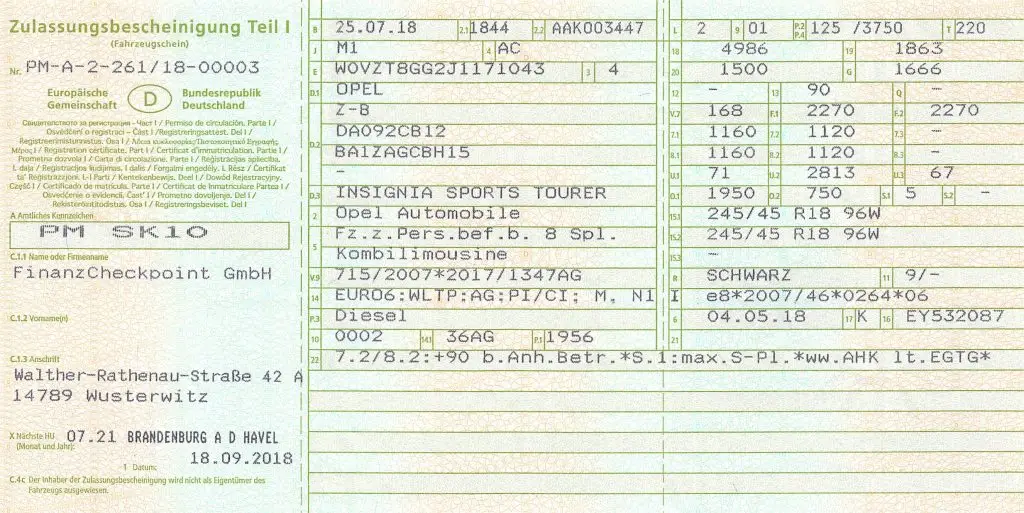 Zulassungsbescheinigung Teil I
(Fahrzeugschein)
Nr. PM-A-2-261/18-00003
Europäische Gemeinschaft D Bundesrepublik Deutschland
Свидетелство за регистрация – Част I / Permiso de circulación. Parte I /
Osvědčení o registraci – Část I / Registreringsattest. Del I /
Registreerimistunnistus. Osa I / Άδεια κυκλοφορίας/Πιστοποιητικό Εγγραφής
Μέρος I / Registration certificate. Part I / Certificat d'immatriculation. Partie I /
Prometna dozvola I / Carta di circolazione. Parte I / Reģistrācijas apliecība.
I. daļa / Registracijos liudijimas. I dalis / Forgalmi engedély. I. Rész / Ċertifikat
ta' Reġistrazzjoni. L-I Parti / Kentekenbewijs. Deel I / Dowód Rejestracyjny.
Część I / Certificado de matrícula. Parte I / Certificat de înmatriculare Partea I /
Osvedčenie o evidencii. Časť I / Prometno dovoljenje. Del I /
Rekisteröintitodistus. Osa I / Registreringsbeviset. Del I
A Amtliches Kennzeichen
PM SK10
C.1.1 Name oder Firmenname
FinanzCheckpoint GmbH
C.1.2 Vorname(n)
C.1.3 Anschrift
Walther-Rathenau-Straße 42 A
14789 Wusterwitz
X Nächste HU (Monat und Jahr): 07.21 BRANDENBURG A D HAVEL
I Datum: 18.09.2018
C.4c Der Inhaber der Zulassungsbescheinigung wird nicht als Eigentümer des
Fahrzeugs ausgewiesen.
B 25.07.18 2.1 1844 2.2 AAK003447
J M1 4 AC
E W0VZT8GG2J1171043 3 4
D.1 OPEL
D.2 Z-B
DA092CB12
BA1ZAGCBH15
-
D.3 INSIGNIA SPORTS TOURER
2 Opel Automobile
5 Fz.z.Pers.bef.b. 8 Spl.
Kombilimousine
V.9 715/2007*2017/1347AG
14 EURO6:WLTP:AG:PI/CI; M, N1 I
P.3 Diesel
10 0002 14.1 36AG P.1 1956
22 7.2/8.2:+90 b.Anh.Betr.*S.1:max.S-Pl.*ww.AHK lt.EGTG*
L 2 9 01 P.2 P.4 125 /3750 T 220
18 4986 19 1863
20 1500 G 1666
12 - 13 90 Q -
V.7 168 F.1 2270 F.2 2270
7.1 1160 7.2 1120 7.3 -
8.1 1160 8.2 1120 8.3 -
U.1 71 U.2 2813 U.3 67
O.1 1950 O.2 750 S.1 5 S.2 -
15.1 245/45 R18 96W
15.2 245/45 R18 96W
15.3 -
R SCHWARZ 11 9/-
K e8*2007/46*0264*06
6 04.05.18 17 K 16 EY532087
21